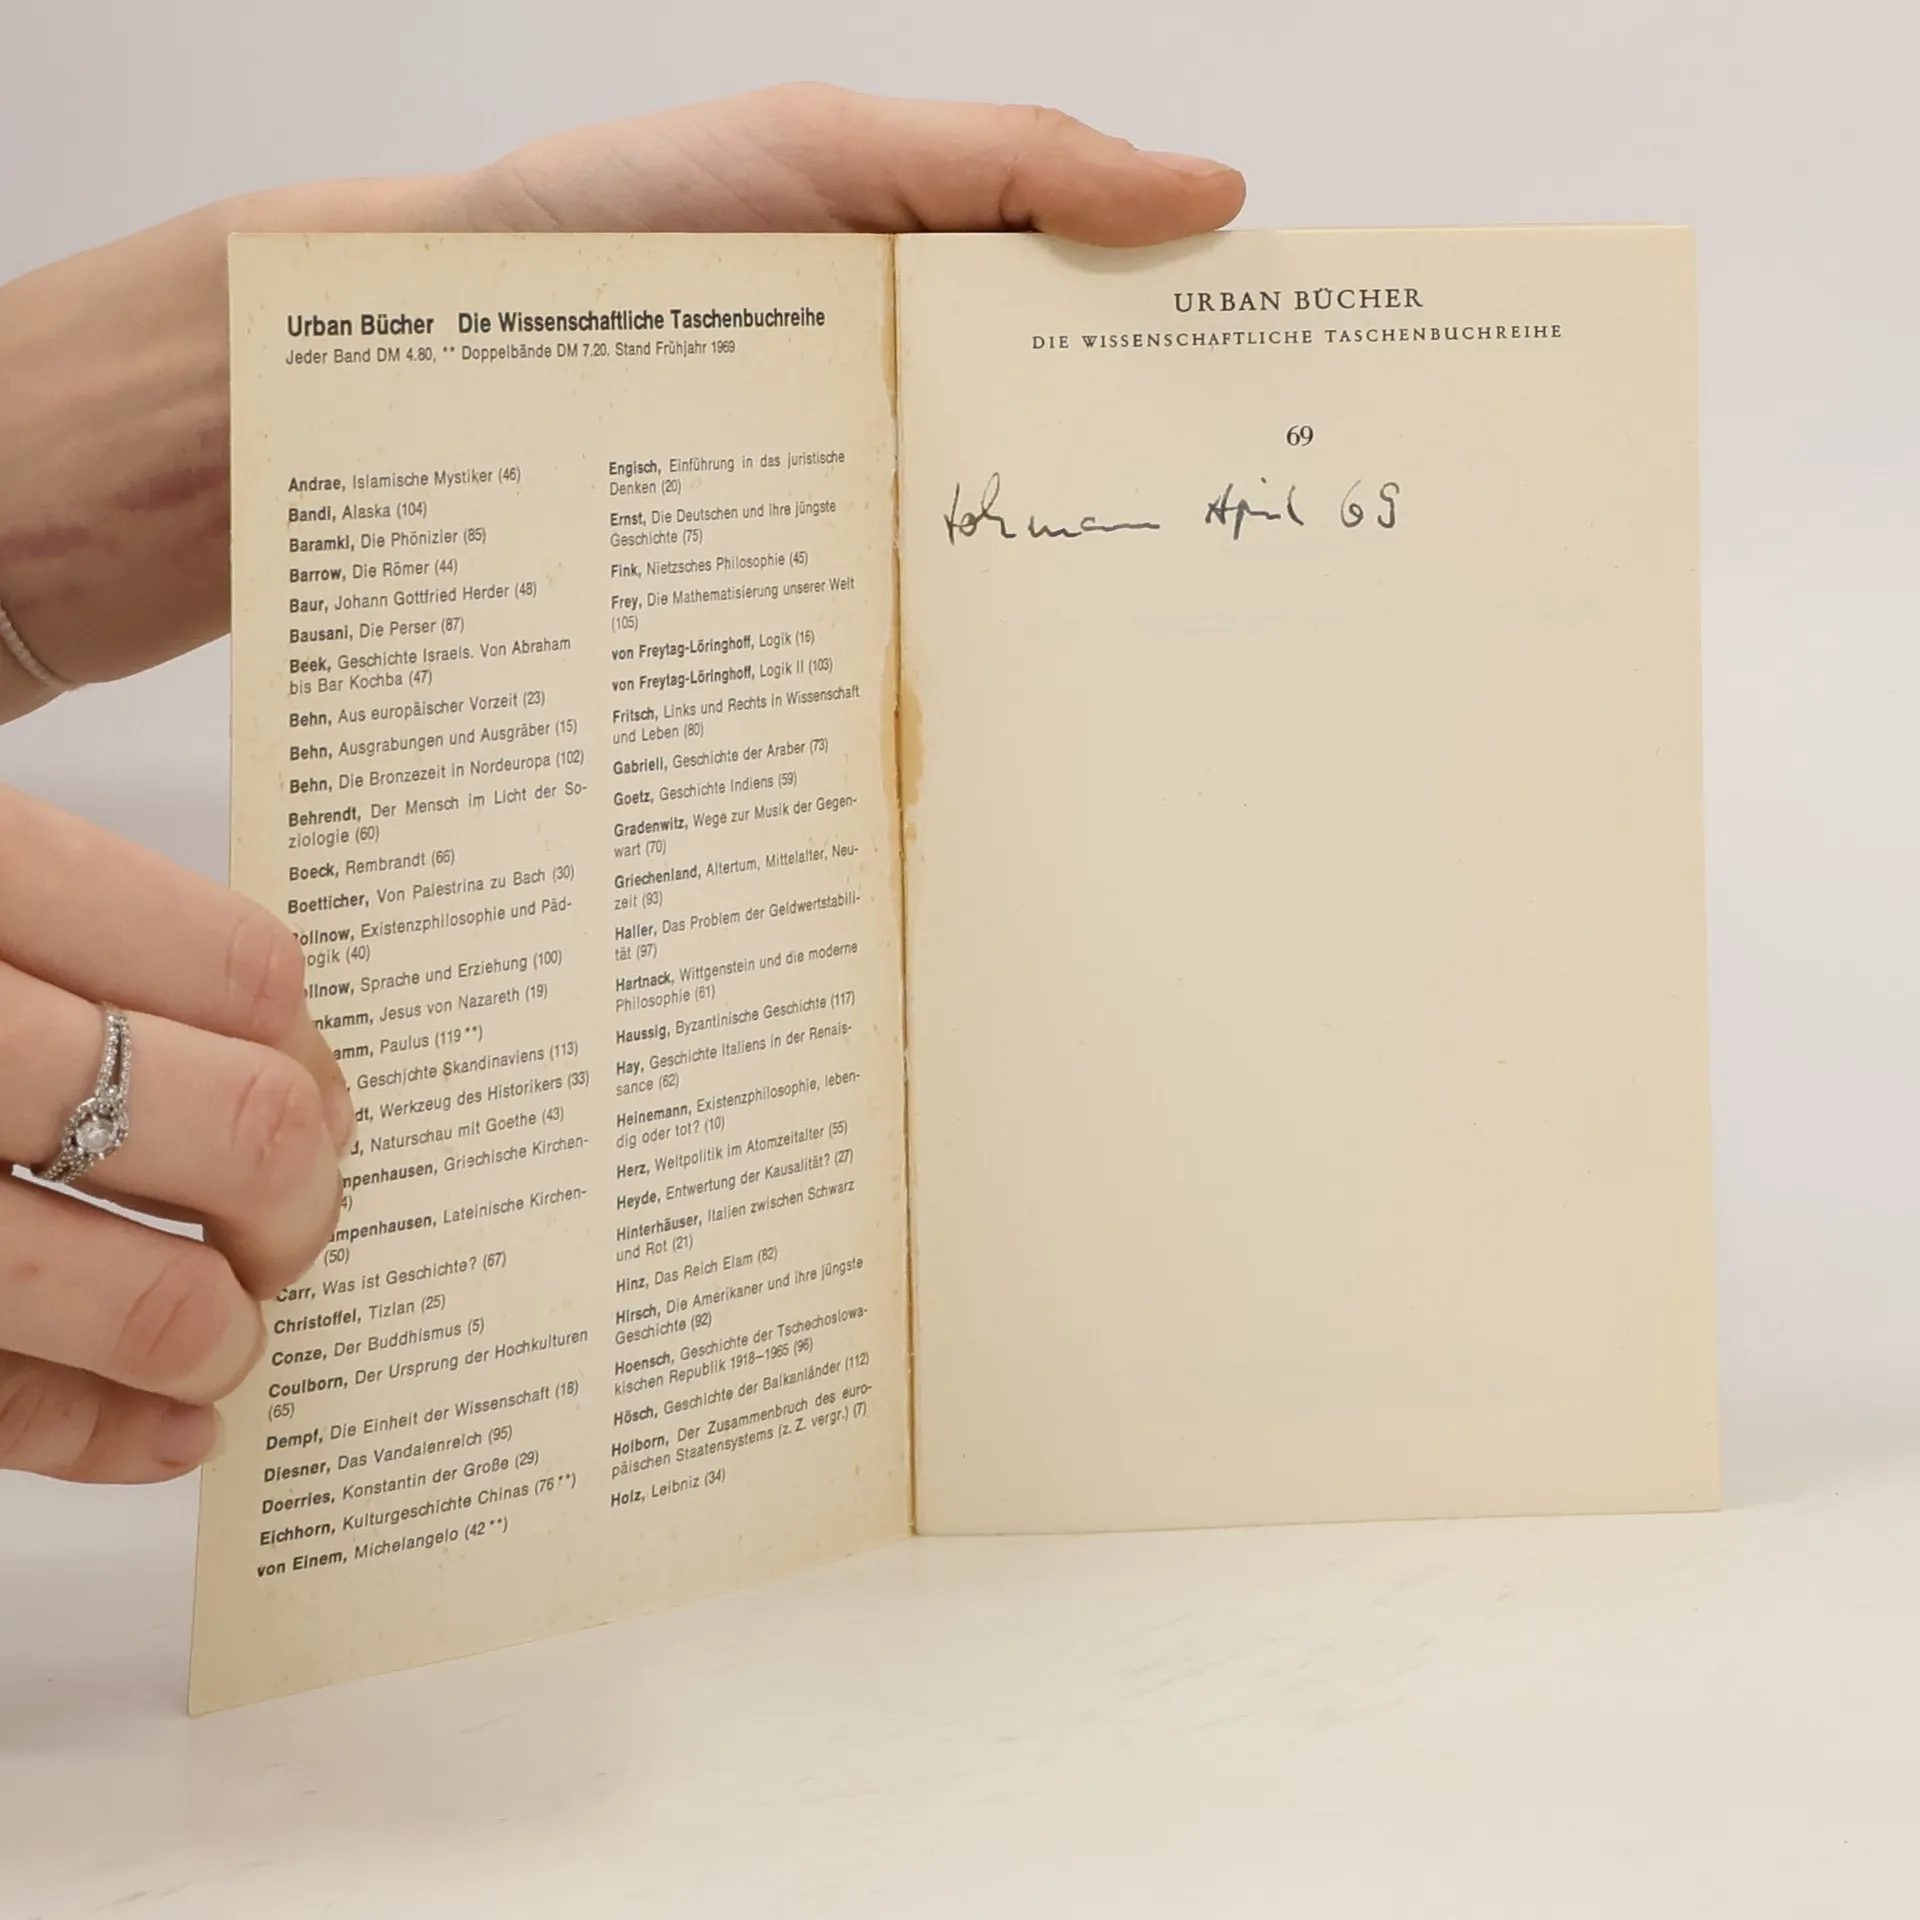 Urban Bücher Die Wissenschaftliche Taschenbuchreihe
Jeder Band DM 4.80, ** Doppelbände DM 7,20. Stand Frühjahr 1969
Andrae, Islamische Mystiker (46)
Bandi, Alaska (104)
Baramki, Die Phönizier (85)
Barrow, Die Römer (44)
Baur, Johann Gottfried Herder (48)
Bausani, Die Perser (87)
Beek, Geschichte Israels. Von Abraham
bis Bar Kochba (47)
Behn, Aus europäischer Vorzeit (23)
Behn, Ausgrabungen und Ausgräber (15)
Behn, Die Bronzezeit in Nordeuropa (102)
Behrendt, Der Mensch im Licht der So-
ziologie (60)
Boeck, Rembrandt (66)
Boetticher, Von Palestrina zu Bach (30)
ollnow, Existenzphilosophie und Päd-
ogik (40)
llnow, Sprache und Erziehung (100)
nkamm, Jesus von Nazareth (19)
amm, Paulus (119**)
, Geschichte Skandinaviens (113)
dt, Werkzeug des Historikers (33)
d, Naturschau mit Goethe (43)
mpenhausen, Griechische Kirchen-
4)
mpenhausen, Lateinische Kirchen-
(50)
Carr, Was ist Geschichte? (67)
Christoffel, Tizian (25)
Conze, Der Buddhismus (5)
Coulborn, Der Ursprung der Hochkulturen
(65)
Dempf, Die Einheit der Wissenschaft (18)
Diesner, Das Vandalenreich (95)
Doerries, Konstantin der Große (29)
Eichhorn, Kulturgeschichte Chinas (76**)
von Einem, Michelangelo (42**)
Engisch, Einführung in das juristische
Denken (20)
Ernst, Die Deutschen und ihre jüngste
Geschichte (75)
Fink, Nietzsches Philosophie (45)
Frey, Die Mathematisierung unserer Welt
(105)
von Freytag-Löringhoff, Logik (16)
von Freytag-Löringhoff, Logik II (103)
Fritsch, Links und Rechts in Wissenschaft
und Leben (80)
Gabrieli, Geschichte der Araber (73)
Goetz, Geschichte Indiens (59)
Gradenwitz, Wege zur Musik der Gegen-
wart (70)
Griechenland, Altertum, Mittelalter, Neu-
zeit (93)
Haller, Das Problem der Geldwertstabili-
tät (97)
Hartnack, Wittgenstein und die moderne
Philosophie (61)
Haussig, Byzantinische Geschichte (117)
Hay, Geschichte Italiens in der Renais-
sance (62)
Heinemann, Existenzphilosophie, leben-
dig oder tot? (10)
Herz, Weltpolitik im Atomzeitalter (55)
Heyde, Entwertung der Kausalität? (27)
Hinterhäuser, Italien zwischen Schwarz
und Rot (21)
Hinz, Das Reich Elam (82)
Hirsch, Die Amerikaner und ihre jüngste
Geschichte (92)
Hoensch, Geschichte der Tschechoslowa-
kischen Republik 1918–1965 (96)
Hösch, Geschichte der Balkanländer (112)
Holborn, Der Zusammenbruch des euro-
päischen Staatensystems (z. Z. vergr.) (7)
Holz, Leibniz (34)
URBAN BÜCHER
DIE WISSENSCHAFTLICHE TASCHENBUCHREIHE
69
April 69